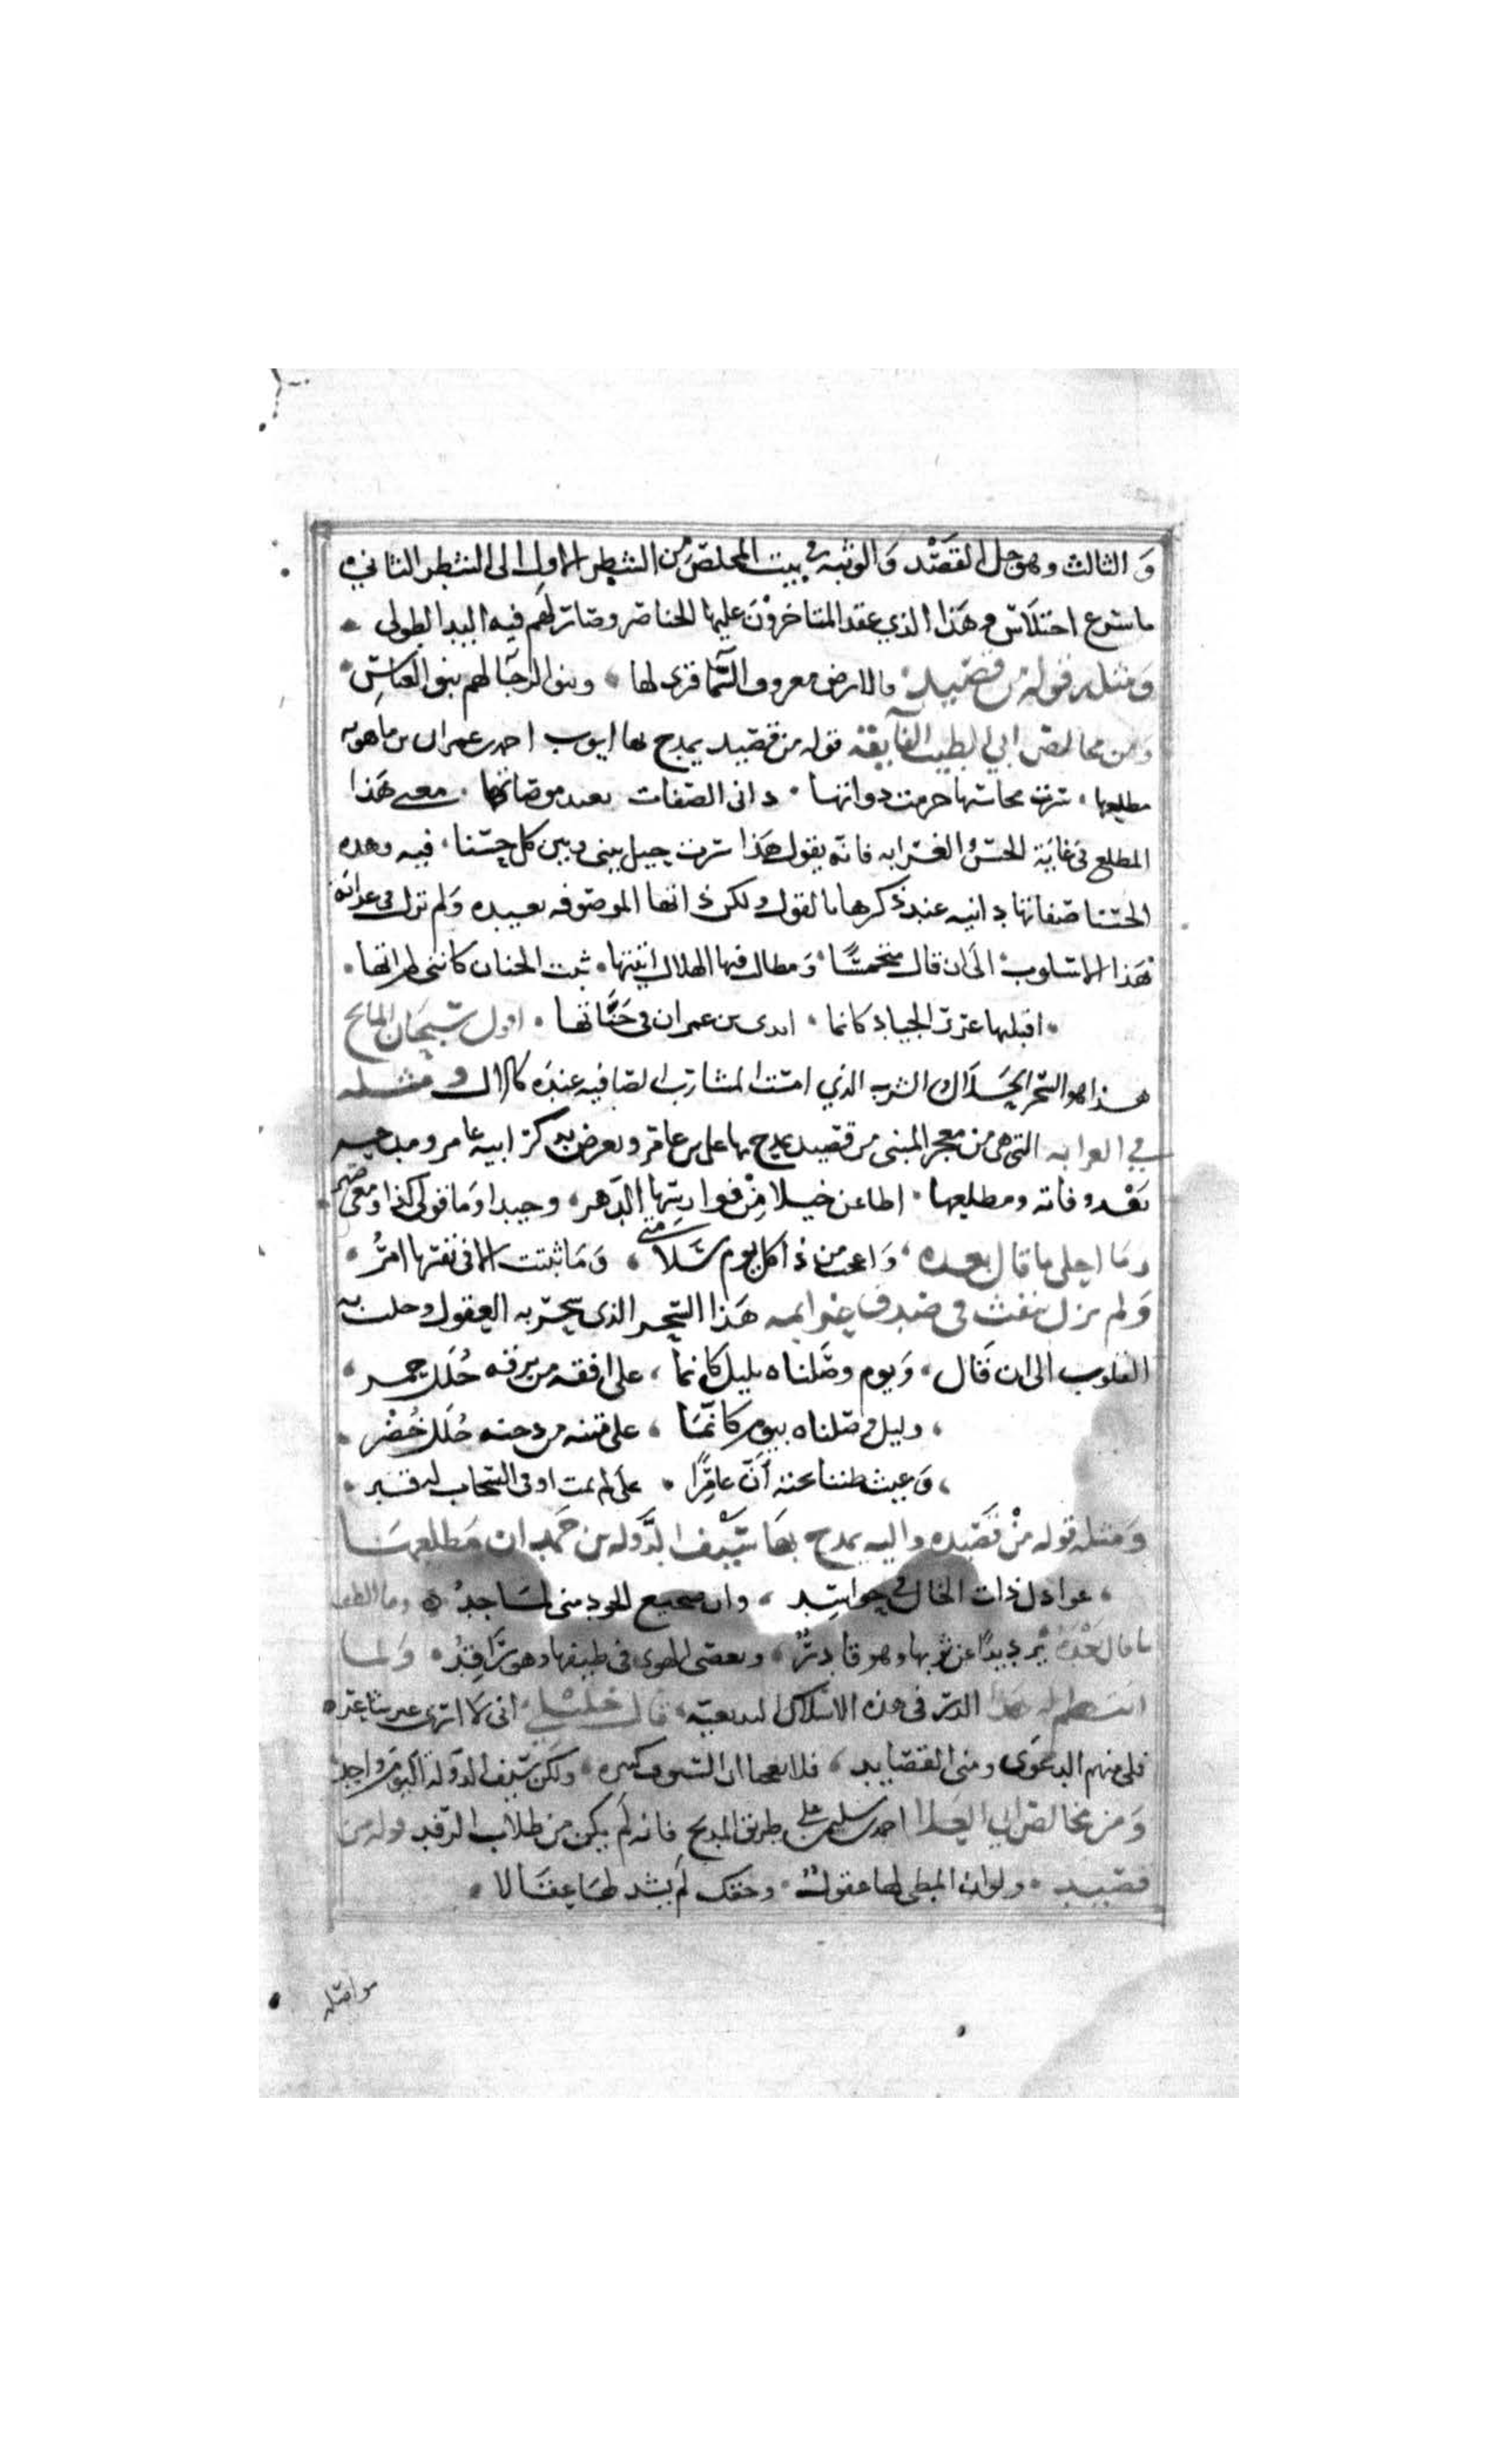 و الثالث وهو جل القصد والوثبه في بيت المخلص من الشطر الاول الى الشطر الثاني
باسرع اختلاس وهذا الذي عقد المتاخرون عليها الخناصر وصار لهم فيه اليد الطولى
ومثله قوله من قصيد فالارض معروف السما قرى لها وبنو الرجا لهم بنو العباس
ومن مخالص ابي الطيب الفايقة قوله من قصيد يمدح بها ايوب احمد بن عمران بن ماهويه
مطلعها سرب محاسنها حرمت دواتها داني الصفات بعيد موصافاتها معنى هذا
المطلع في غاية الحسن الغرابه فانه يقول هذا سرب حيل بيني وبين كل حسنا فيه وهذه
الحسنا صفاتها دانيه عند ذكرها بالقول ولكن ذاتها الموصوفه بعيده ولم نزل في
هذا الاسلوب الى ان قال متحمسا ومطالب فيها الهلاك اتيتها ثبت الجنان كانني لم اتها
اقبلها غرر الجياد كانما ايدى بني عمران في جبهاتها اقول سبحان المانح
هذا هو السحر الحلال الشرب الذي امست المشارب الصافيه عنده كالال ومثله
في الغرابه التي هي من معجز المبنى من قصيد يمدح بها علي بن عامر ويعرض بذكر ابيه عامر ومدحيه
بعد وفاته ومطلعها اطاعن خيلا من فوارسها الدهر وحيدا وما قولي كذا ومعى صبر
وما احلى ما قال بعده واعجب من ذا كل يوم سلامتي وما ثبتت الا في نفسها امر
ولم نزل ينفث في صدف غرايبه هذا السحر الذي سحر به العقول وحلت به
القلوب الى ان قال ويوم وصلناه بليل كانما على افقه من برقه حلل حمر
وليل وصلناه بيوم كانما على متنه من دجنه حلل خضر
وغيث ظننا تحته ان عامرا على لم يمت او في السحاب له قبر
ومثله قوله من قصيده داليه يمدح بها سيف الدوله بن حمدان مطلعها
عواذل ذات الخال في حواسد وان ضجيع الخود مني لماجد وما الطف
ما قال بعده يرد يدا عن ثوبها وهو قادر ويعصى الهوى في طيفها وهو راقد ولما
انتظم له هذا الدر في هذه الاسلاك البديعيه قال خليلي اني لا ارى غير شاعر
فلم منهم الدعوى ومني القصايد فلا تعجبا ان السيوف كثيره ولكن سيف الدوله اليوم واحد
ومن مخالص ابي العلا احمد بن سليمن على طريق المديح فانه لم يكن من طلاب الرفد قوله من
قصيد ولو ان المطى لها عقول وحقك لم يشد لها عقالا
مواصله